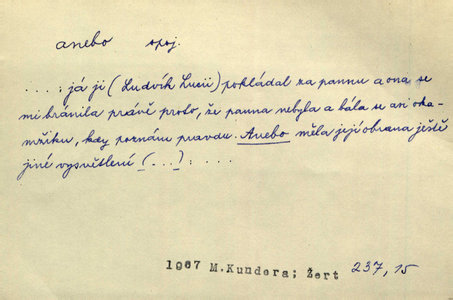 anebo spoj.
. . . . : já ji (Ludvík Lucii) pokládal za pannu a ona se
mi bránila právě proto, že panna nebyla a bála se asi oka-
mžiku, kdy poznám pravdu. Anebo měla její obrana ještě
jiné vysvětlení (...): . . . .
1967 M.Kundera; Žert 237, 15